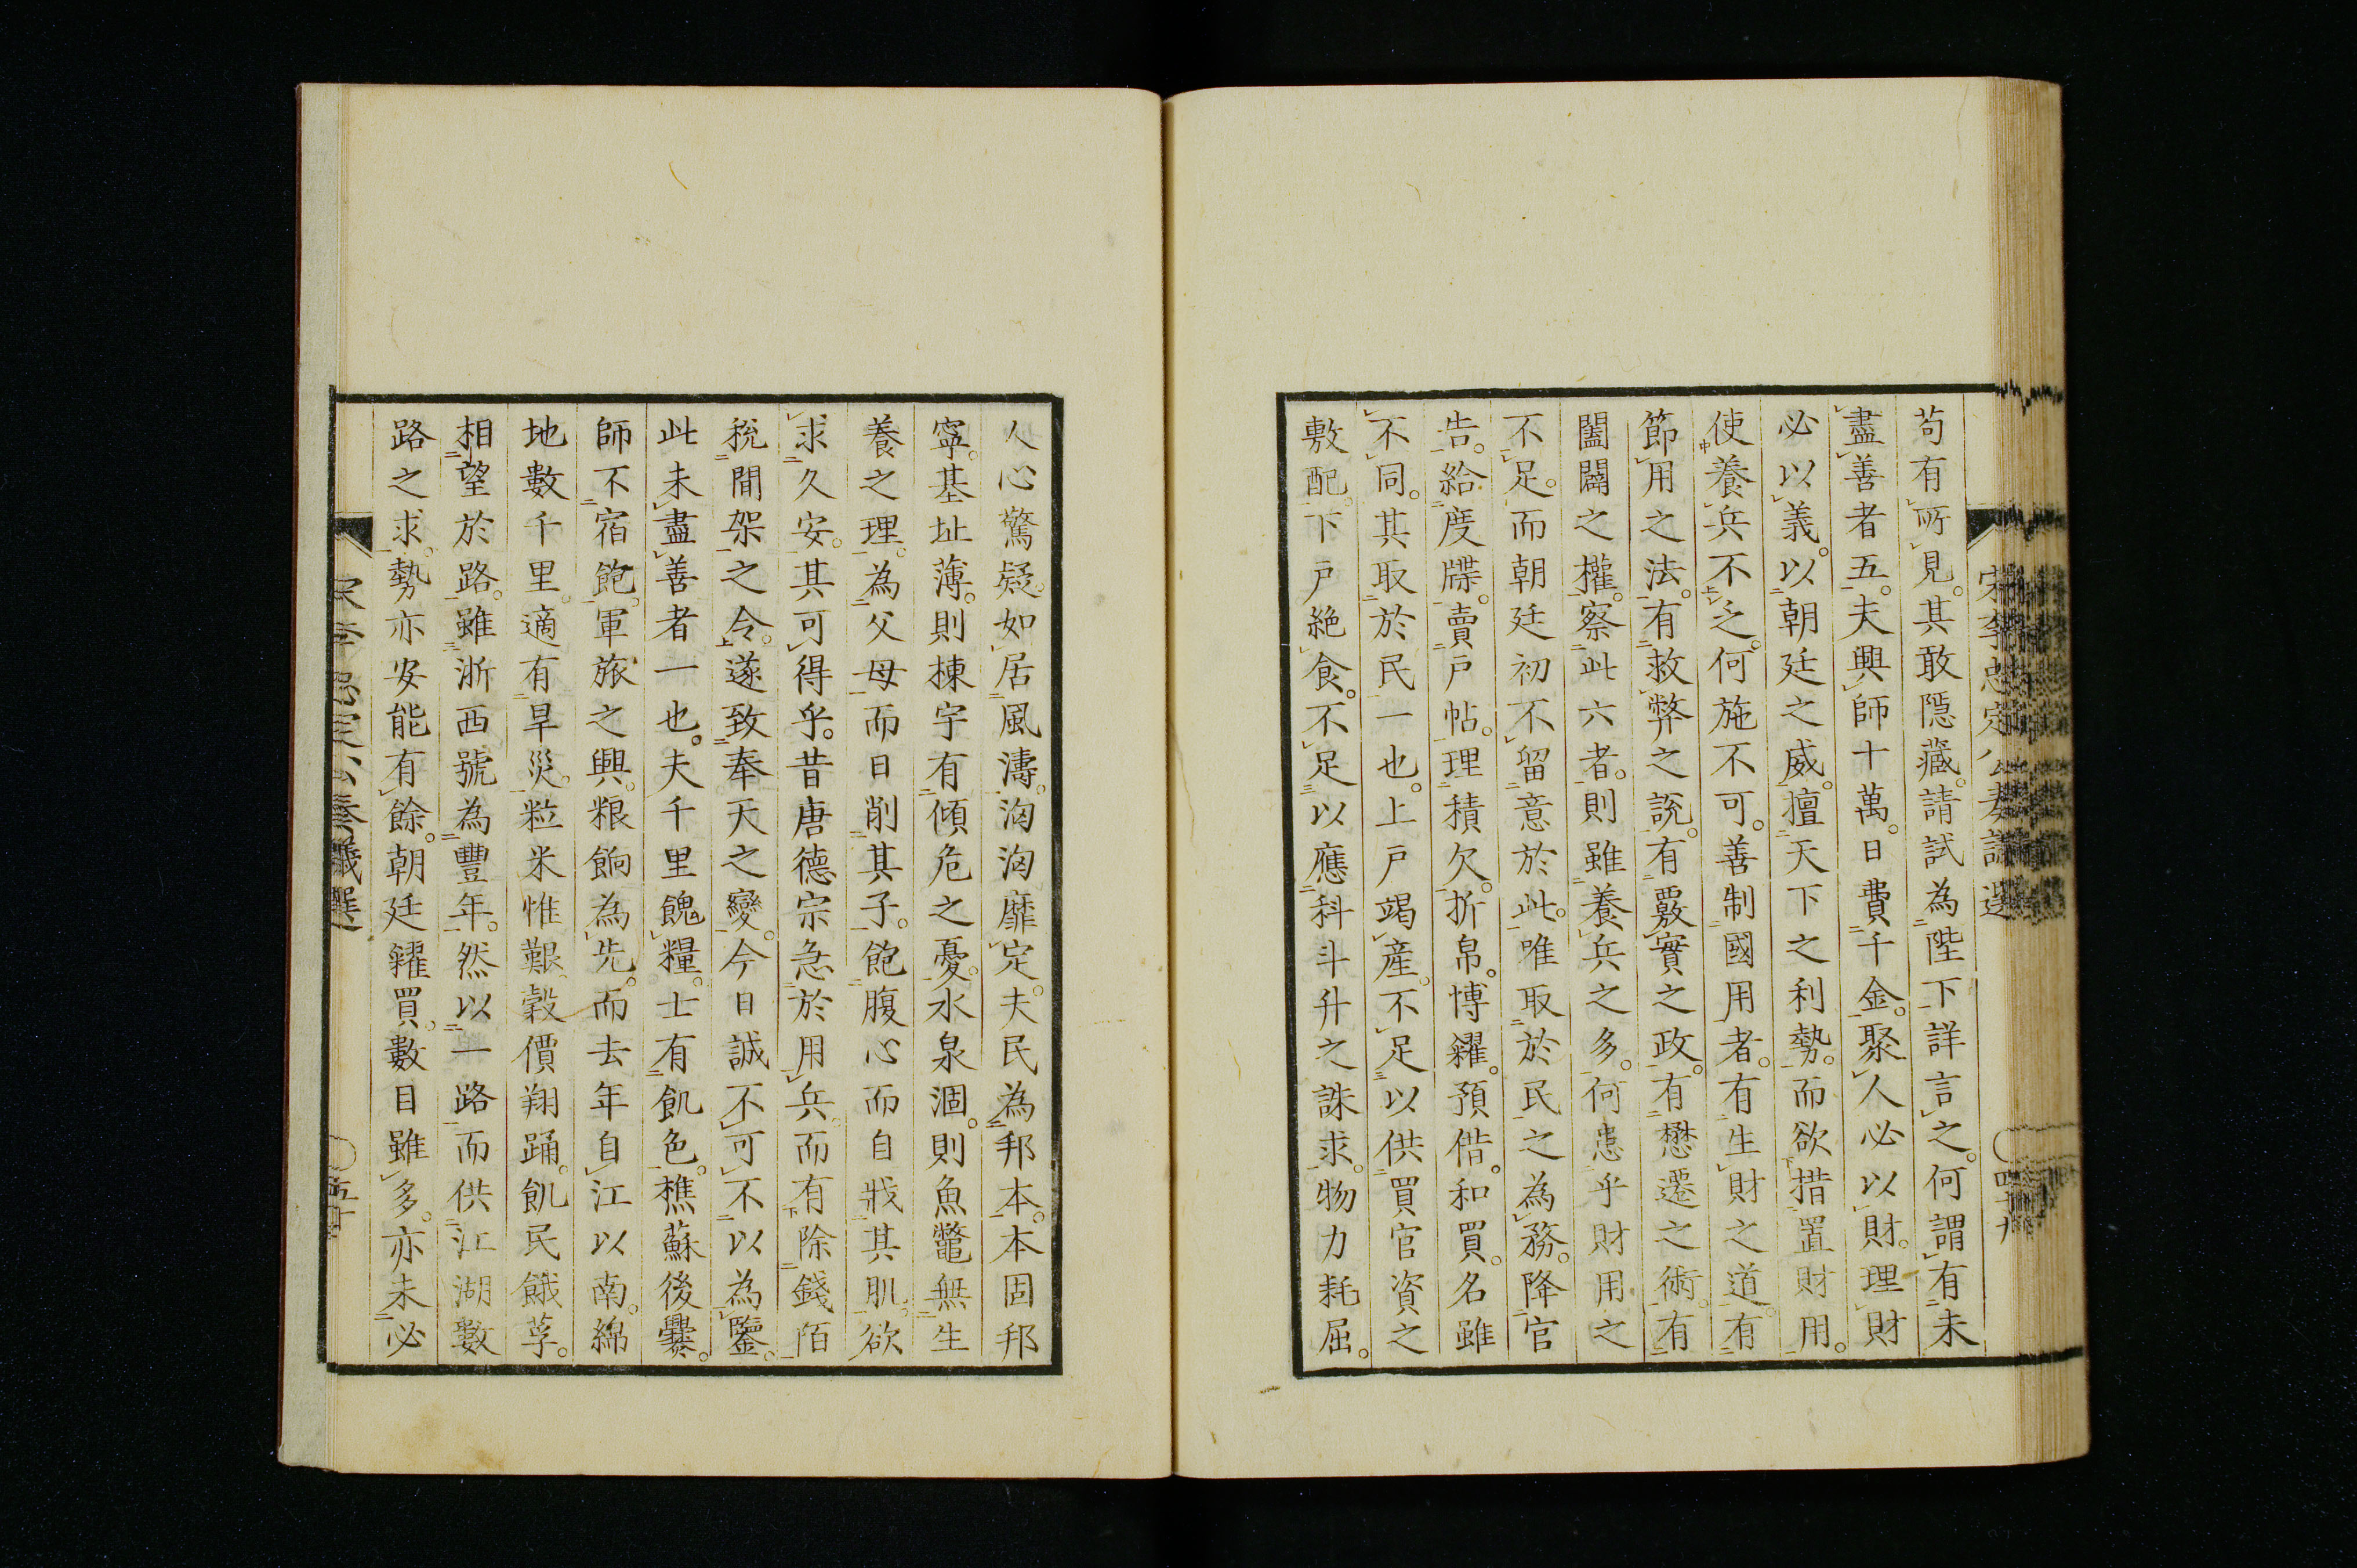 苟有所見。其敢隱藏。請試為陛下詳言之。何謂有未
盡善者五。夫興師十萬。日費千金。聚人必以財。理財
必以義。以朝廷之威。擅天下之利勢。而欲措置財用。
使養兵不乏。何施不可。善制國用者。有生財之道。有
節用之法。有救弊之說。有覈實之政。有懋遷之術。有
闔闢之權。察此六者。則雖養兵之多。何患乎財用之
不足。而朝廷初不留意於此。唯取於民之為務。降官
告。給度牒。賣戶帖。理積欠。折帛。博糴。預借。和買。名雖
不同。其取於民一也。上戶竭產。不足以供買官資之
敷配。下戶絕食。不足以應科斗升之誅求。物力耗屈。
宋李忠定公奏議選
四十九
人心驚疑。如居風濤。洶洶靡定。夫民為邦本。本固邦
寧。基址薄。則棟宇有傾危之憂。水泉涸。則魚鼈無生
養之理。為父母而日削其子。飽腹心而自戕其肌。欲
求久安。其可得乎。昔唐德宗急於用兵。而有除錢陌
稅間架之令。遂致奉天之變。今日誠不可不以為鑒。
此未盡善者一也。夫千里餽糧。士有飢色。樵蘇後爨。
師不宿飽。軍旅之興。粮餉為先。而去年自江以南。綿
地數千里。適有旱災。粒米惟艱。穀價翔踊。飢民餓莩。
相望於路。雖浙西號為豐年。然以一路而供江湖數
路之求。勢亦安能有餘。朝廷糴買。數目雖多。亦未必
宋李忠定公奏議選
五十